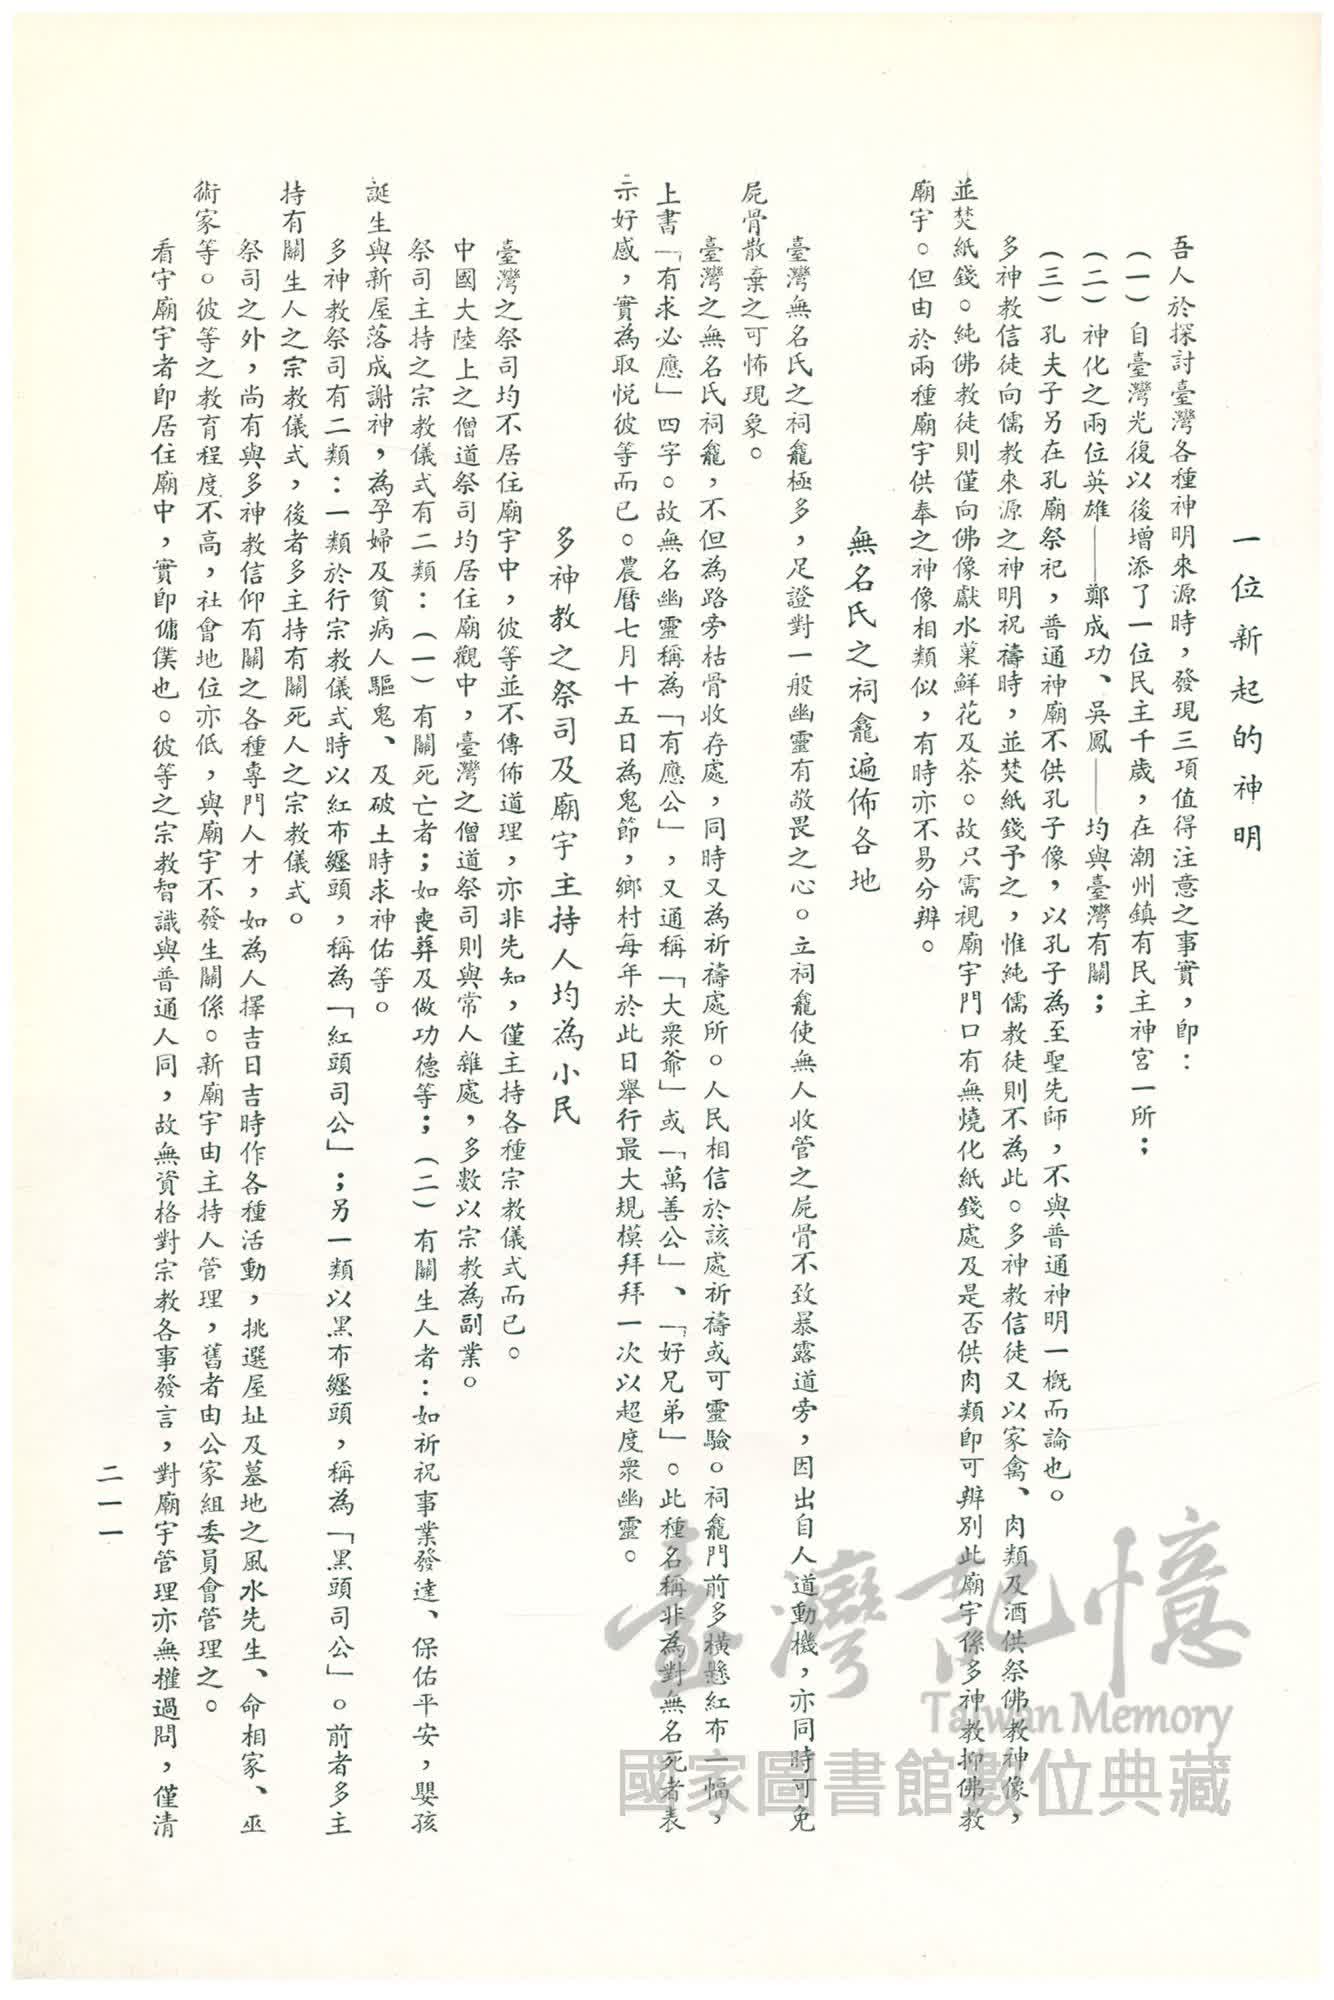 一位新起的神明
吾人於探討臺灣各種神明來源時，發現三項值得注意之事實，即：
（一）自臺灣光復以後增添了一位民主千歲，在潮州鎮有民主神宮一所；
（二）神化之兩位英雄——鄭成功、吳鳳——均與臺灣有關；
（三）孔夫子另在孔廟祭祀，普通神廟不供孔子像，以孔子為至聖先師，不與普通神明一概而論也。
多神教信徒向儒教來源之神明祝禱時，並焚紙錢予之，惟純儒教徒則不為此。多神教信徒又以家禽、肉類及酒供祭佛教神像，
並焚紙錢。純佛教徒則僅向佛像獻水菓鮮花及茶。故只需視廟宇門口有無燒化紙錢處及是否供肉類即可辨別此廟宇係多神教抑佛教
廟宇。但由於兩種廟宇供奉之神像相類似，有時亦不易分辨。
無名氏之祠龕遍佈各地
臺灣無名氏之祠龕極多，足證對一般幽靈有敬畏之心。立祠龕使無人收管之屍骨不致暴露道旁，因出自人道動機，亦同時可免
屍骨散棄之可怖現象。
臺灣之無名氏祠龕，不但為路旁枯骨收存處，同時又為祈禱處所。人民相信於該處祈禱或可靈驗。祠龕門前多橫懸紅布一幅，
上書「有求必應」四字。故無名幽靈稱為「有應公」，又通稱「大衆爺」或「萬善公」、「好兄弟」。此種名稱非為對無名死者表
示好感，實為取悅彼等而已。農曆七月十五日為鬼節，鄉村每年於此日舉行最大規模拜拜一次以超度衆幽靈。
多神教之祭司及廟宇主持人均為小民
臺灣之祭司均不居住廟宇中，彼等並不傳佈道理，亦非先知，僅主持各種宗教儀式而已。
中國大陸上之僧道祭司均居住廟觀中，臺灣之僧道祭司則與常人雜處，多數以宗教為副業。
祭司主持之宗教儀式有二類：（一）有關死亡者；如喪葬及做功德等；（二）有關生人者：如祈祝事業發達、保佑平安，嬰孩
誕生與新屋落成謝神，為孕婦及貧病人驅鬼、及破土時求神佑等。
多神教祭司有二類：一類於行宗教儀式時以紅布纏頭，稱為「紅頭司公」；另一類以黑布纏頭，稱為「黑頭司公」。前者多主
持有關生人之宗教儀式，後者多主持有關死人之宗教儀式。
祭司之外，尚有與多神教信仰有關之各種專門人才，如為人擇吉日吉時作各種活動，挑選屋址及墓地之風水先生、命相家、巫
術家等。彼等之教育程度不高，社會地位亦低，與廟宇不發生關係。新廟宇由主持人管理，舊者由公家組委員會管理之。
看守廟宇者即居住廟中，實即傭僕也。彼等之宗教智識與普通人同，故無資格對宗教各事發言，對廟宇管理亦無權過問，僅清
二一一
臺灣記憶
Taiwan Memory
國家圖書館數位典藏